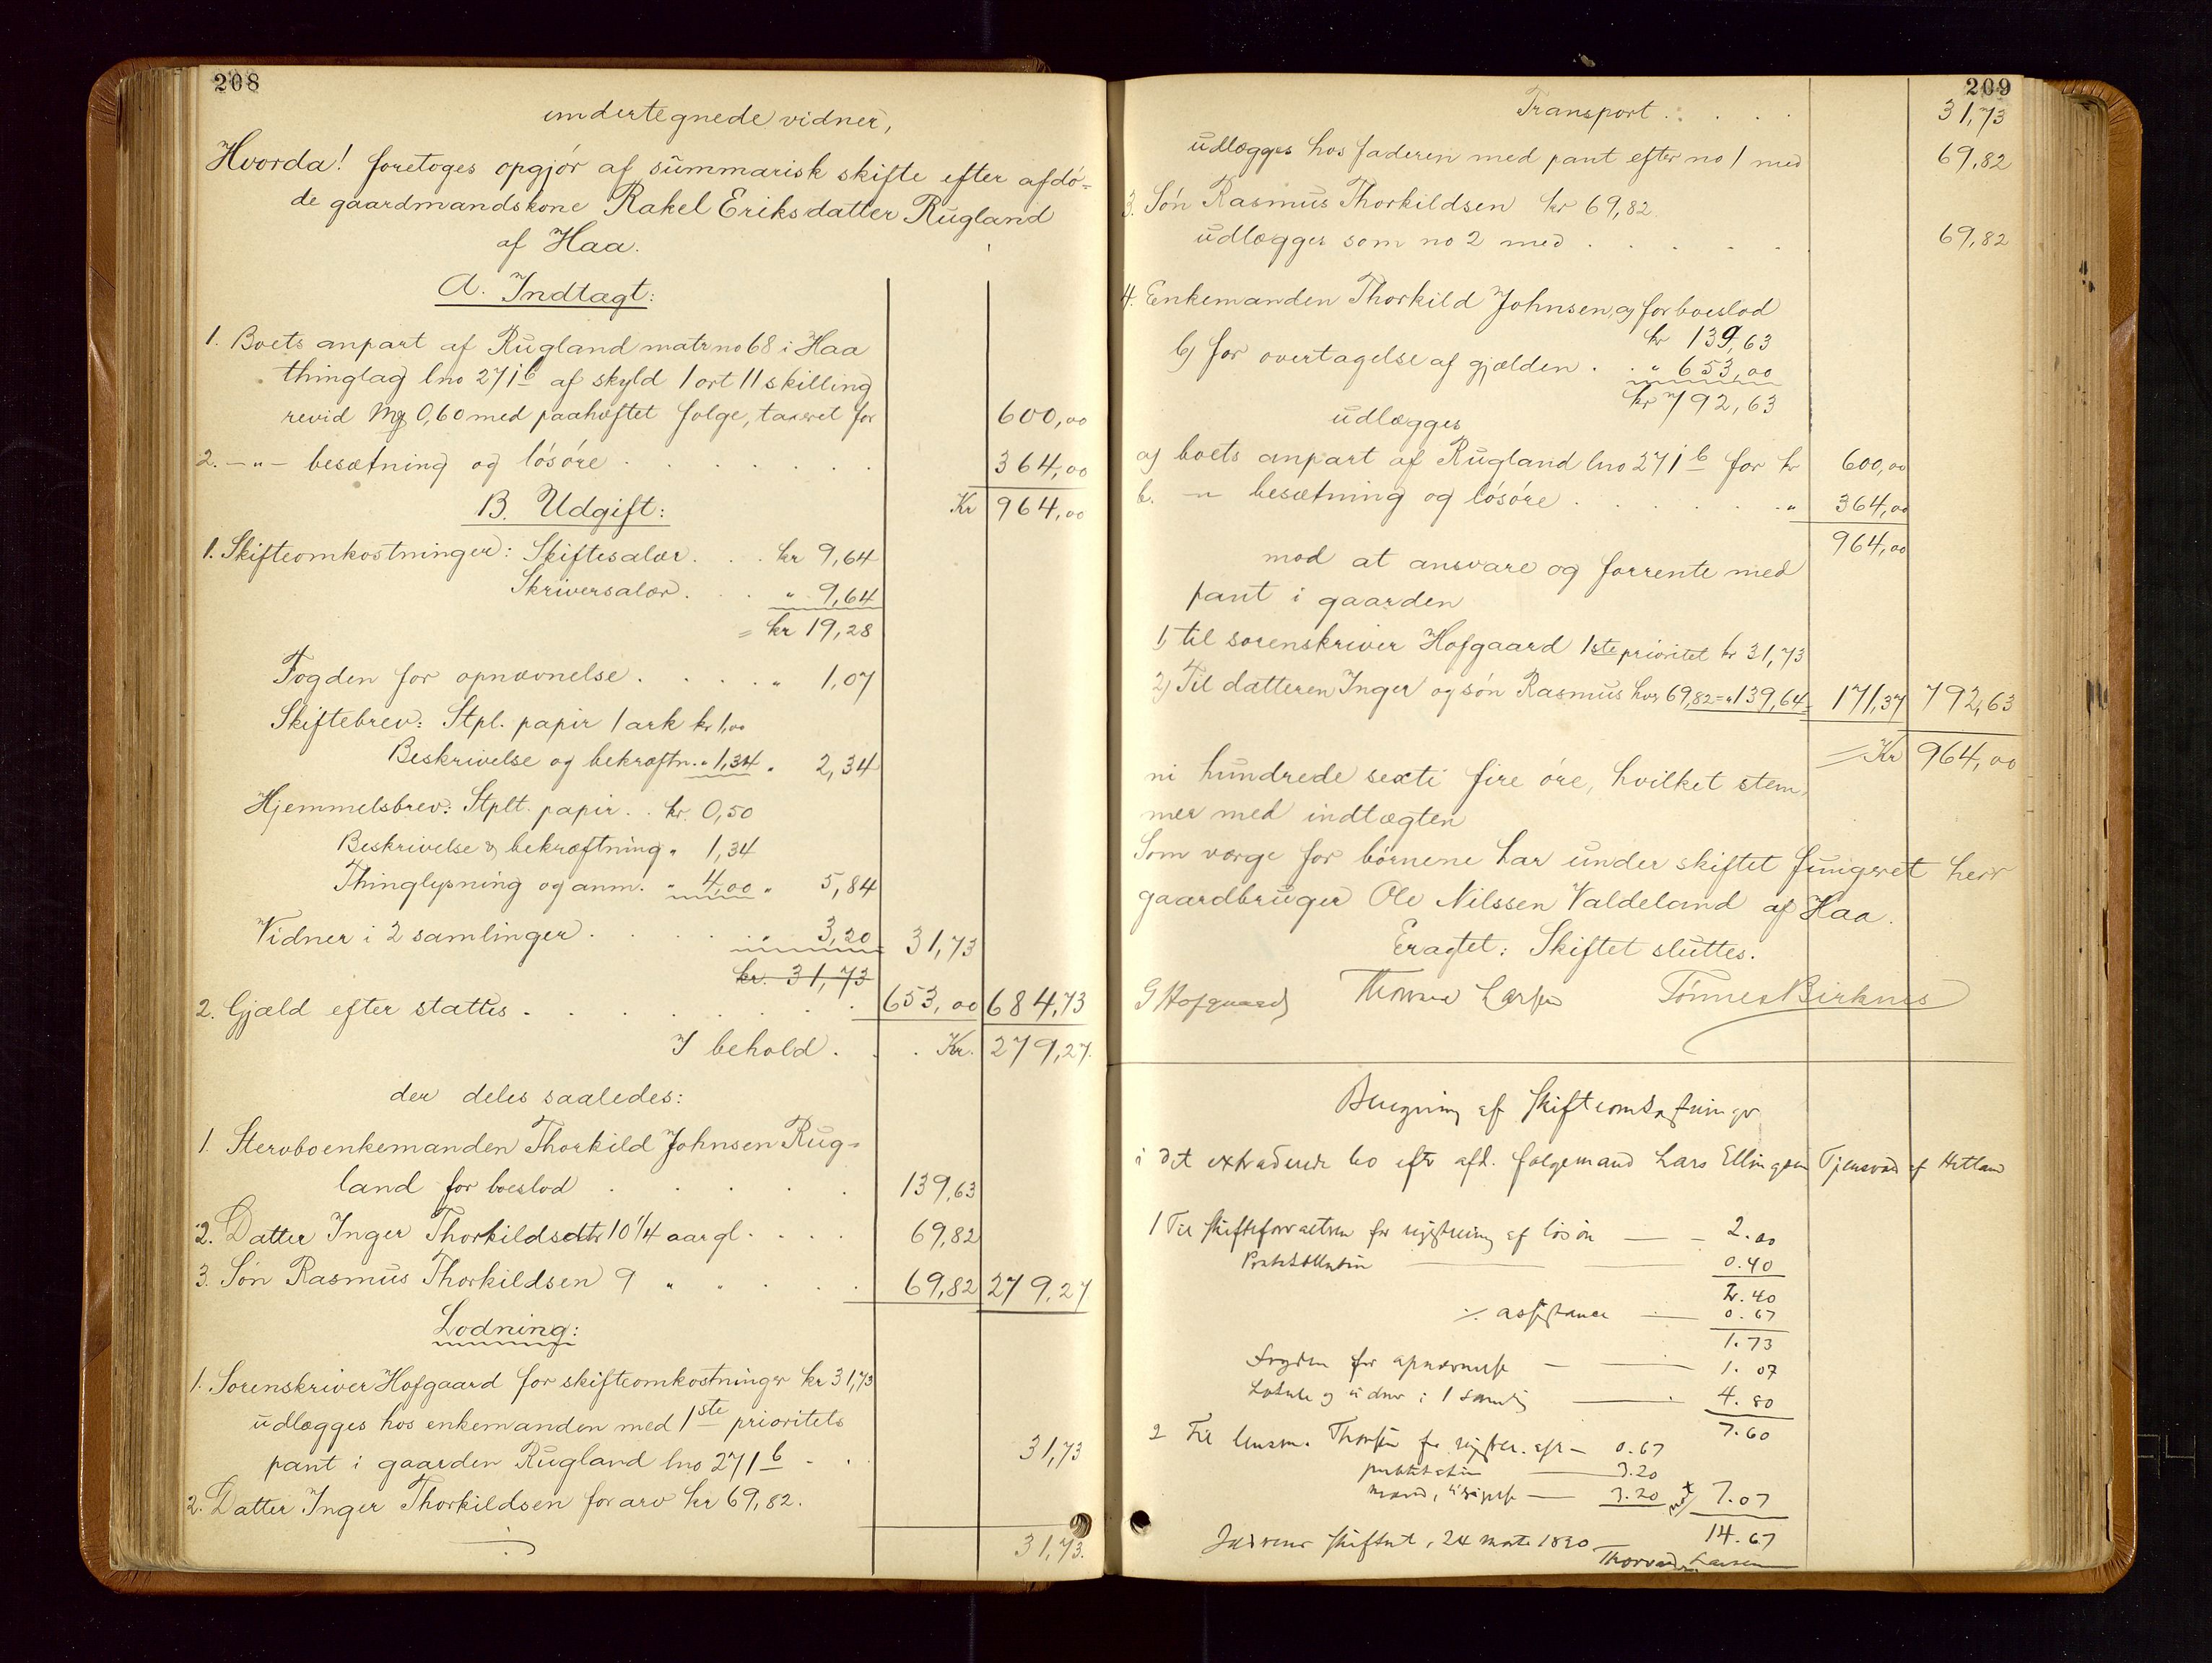 208
undertegnede vidner,
Hvorda! foretoges opgjør af summarisk skifte efter afdø-
de gaardmandskone Rakel Eriksdatter Rugland
af Haa.
A. Indtægt:
1. Boets anpart af Rugland matr no 68 i Haa
thinglag lno 271 b af skyld 1 ort 11 skilling
revid Mg 0,60 med paahæftet folge, taxeret for 600,00
2. -"- besætning og løsøre . . . . . . . 364,00
Kr 964,00
B. Udgift:
1. Skifteomkostninger: Skiftesalær. . . kr 9,64
Skriversalær. . . " 9,64
= kr 19,28
Fogden for opnævnelse . . . . " 1,07
Skiftebrev: Stpl. papir 1 ark kr 1,00
Beskrivelse og bekræftn. " 1,34 " 2,34
Hjemmelsbrev: Stplt. papir . . kr. 0,50
Beskrivelse & bekræftning " 1,34
Thinglysning og anm. " 4,00 " 5,84
Vidner i 2 samlinger . . . . . " 3,20 = 31,73
kr. 31,73
2. Gjæld efter stattis . . . . . . . . 653,00 684,73
I behold . . . Kr. 279,27.
der deles saaledes:
1. Stervboenkemanden Thorkild Johnsen Rug-
land for boeslod . . . . . 139,63
2. Datter Inger Thorkildsdtr 10 1/4 aar gl. . . . 69,82
3. Søn Rasmus Thorkildsen 9 " " . . . 69,82 279,27
Lodning:
1. Sorenskriver Hofgaard for skifteomkostninger kr 31,73
udlægges hos enkemanden med 1ste prioritets
pant i gaarden Rugland lno 271 b . . 31,73
2. Datter Inger Thorkildsen for arv kr 69,82.
31,73.
209
Transport . . . . 31,73
udlægges hos faderen med pant efter no 1 med 69,82
3. Søn Rasmus Thorkildsen kr 69,82
udlægges som no 2 med . . . . . 69,82
4. Enkemanden Thorkild Johnsen, a) for boeslod
kr 139,63
b) for overtagelse af gjælden . . " 653,00
kr 792,63
udlægges
a) boets anpart af Rugland lno 271 b for kr 600,00
b. -"- besætning og løsøre . . . . . . " 364,00
964,00
mod at ansvare og forrente med
pant i gaarden
1, til sorenskriver Hofgaard 1ste prioritet kr 31,73
2) Til datteren Inger og søn Rasmus hver 69,82 = " 139,64 = 171,37 792,63
= Kr 964,00
ni hundrede sexti fire øre, hvilket stem-
mer med indtægten
Som værge for børnene har under skiftet fungeret herr
gaardbruger Ole Nilssen Valdeland af Haa.
Eragtet: Skiftet sluttes.
G Hofgaard Thorvald Larsen Tønnes Birknes
Beregning af skifteomkostninger
i det extraderede bo efter afd. folgemand Lars Ellingsen Tjensvold af Hetland
1 Til skifteforvalteren for registrering af løsøre — - 2.00
Protokollation — 0.40
2.40
÷ assistance — 0.67
1.73
Fogden for opnævnelse — 1.07
Lokale og vidner i 1 samlig — 4.80
7.60
2 Til lensm. Thorsen for registr. efr — 0.67
— 3.20
— 3.20 7.07
14.67
Jædrens skifteret, 24 marts 1890
Thorvald Larsen